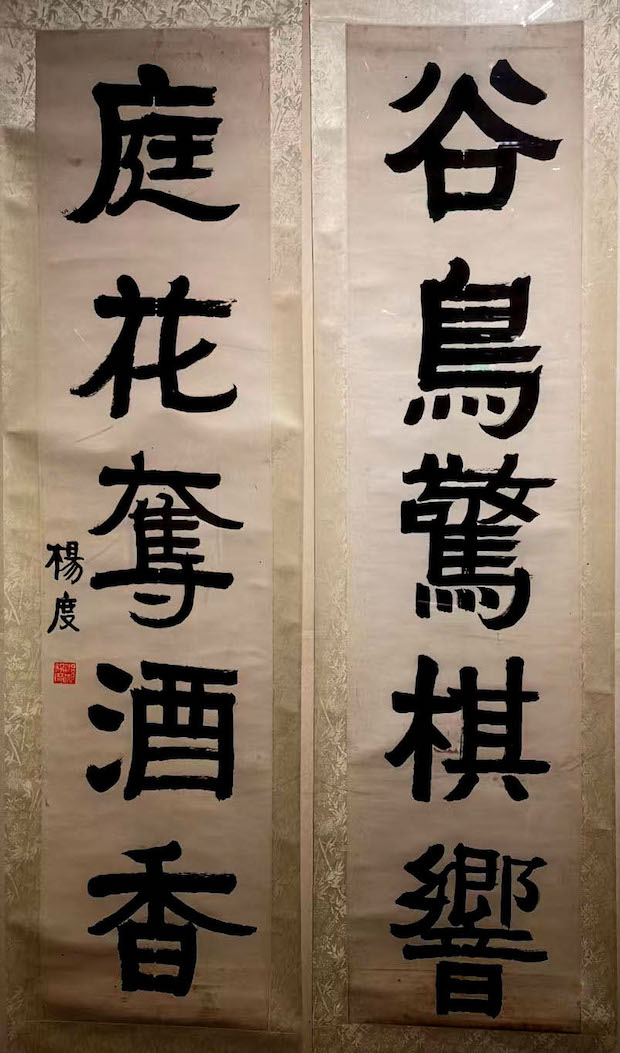 谷鳥驚棋響
庭花奪酒香
楊度